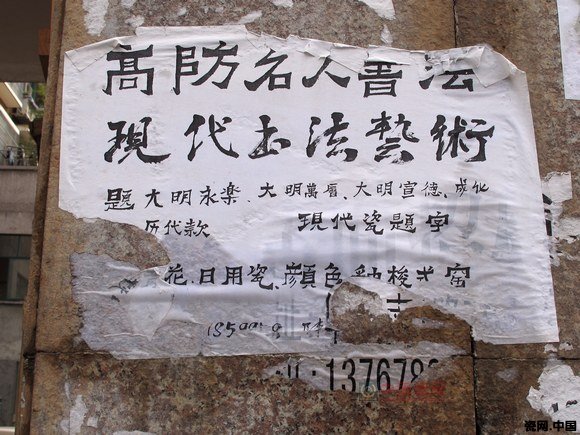 高防名人書法
現代书法藝術
題大明永樂、大明萬曆、大明宣德、成化
历代款 現代瓷題字
花、日用瓷、顏色釉梭式窑
137678
瓷网.中国